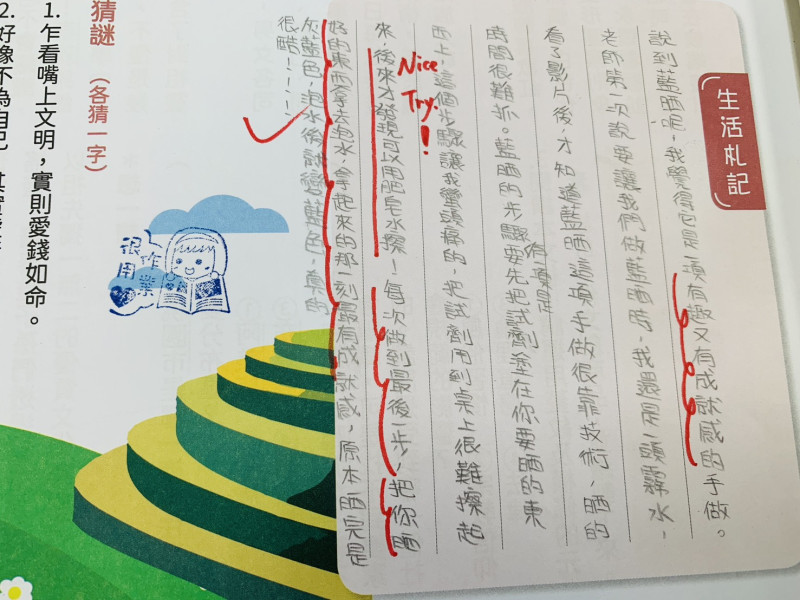 生活札記
說到藍晒呢，我覺得它是一項有趣又有成就感的手做。
老師第一次說要讓我們做藍晒時，我還是一頭霧水，
看了影片後，才知道藍晒這項手做很靠技術，晒的
時間很難抓。藍晒的步驟有一項是要先把試劑塗在你要晒的東
西上，這個步驟讓我蠻頭痛的，把試劑用到桌上很難擦起
來，後來才發現可以用肥皂水擦！每次做到最後一步，把你晒
好的東西拿去泡水，拿起來的那一刻最有成就感，原本晒完是
灰藍色，泡水後就變藍色，真的
很酷！！！！
Nice
Try.!
作業
很用
猜謎（各猜一字）
1. 乍看嘴上文明，實則愛錢如命。
2. 好像不為自己